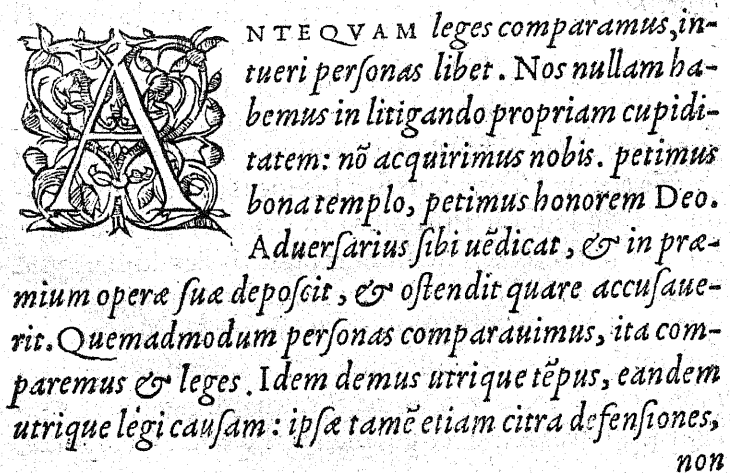 ANTEQVAM leges comparamus, in-
tueri perſonas libet. Nos nullam ha-
bemus in litigando propriam cupidi-
tatem: nõ acquirimus nobis. petimus
bona templo, petimus honorem Deo.
Aduerſarius ſibi uẽdicat, & in præ-
mium operæ ſuæ depoſcit, & oſtendit quare accuſaue-
rit. Quemadmodum perſonas comparauimus, ita com-
paremus & leges. Idem demus utrique tẽpus, eandem
utrique legi cauſam: ipſæ tamẽ etiam citra defenſiones,
non